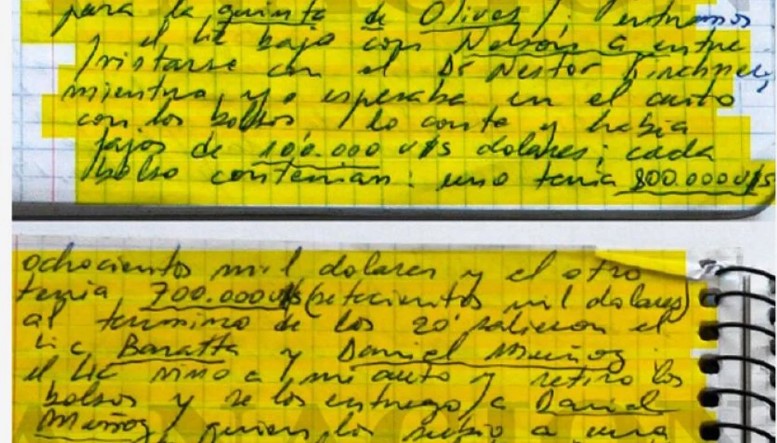 para la quinta de Olivos /: entramos
y el Lic bajo con Nelson a entre
/vistarse con el Dr Nestor Kirchner,
mientras yo esperaba en el auto
con los bolsos / lo conte y habia
fajos de 100.000 u/s dolares; cada
bolso contenian: uno tenia 800.000 u/s
ochocientos mil dolares y el otro
tenia 700.000 u/s (setecientos mil dolares)
al termino de los 20' salieron el
Lic Baratta y Daniel Muñoz
el Lic vino a mi auto y retiro los
bolsos y se los entrego / a Daniel
Muñoz / quien los subio a una